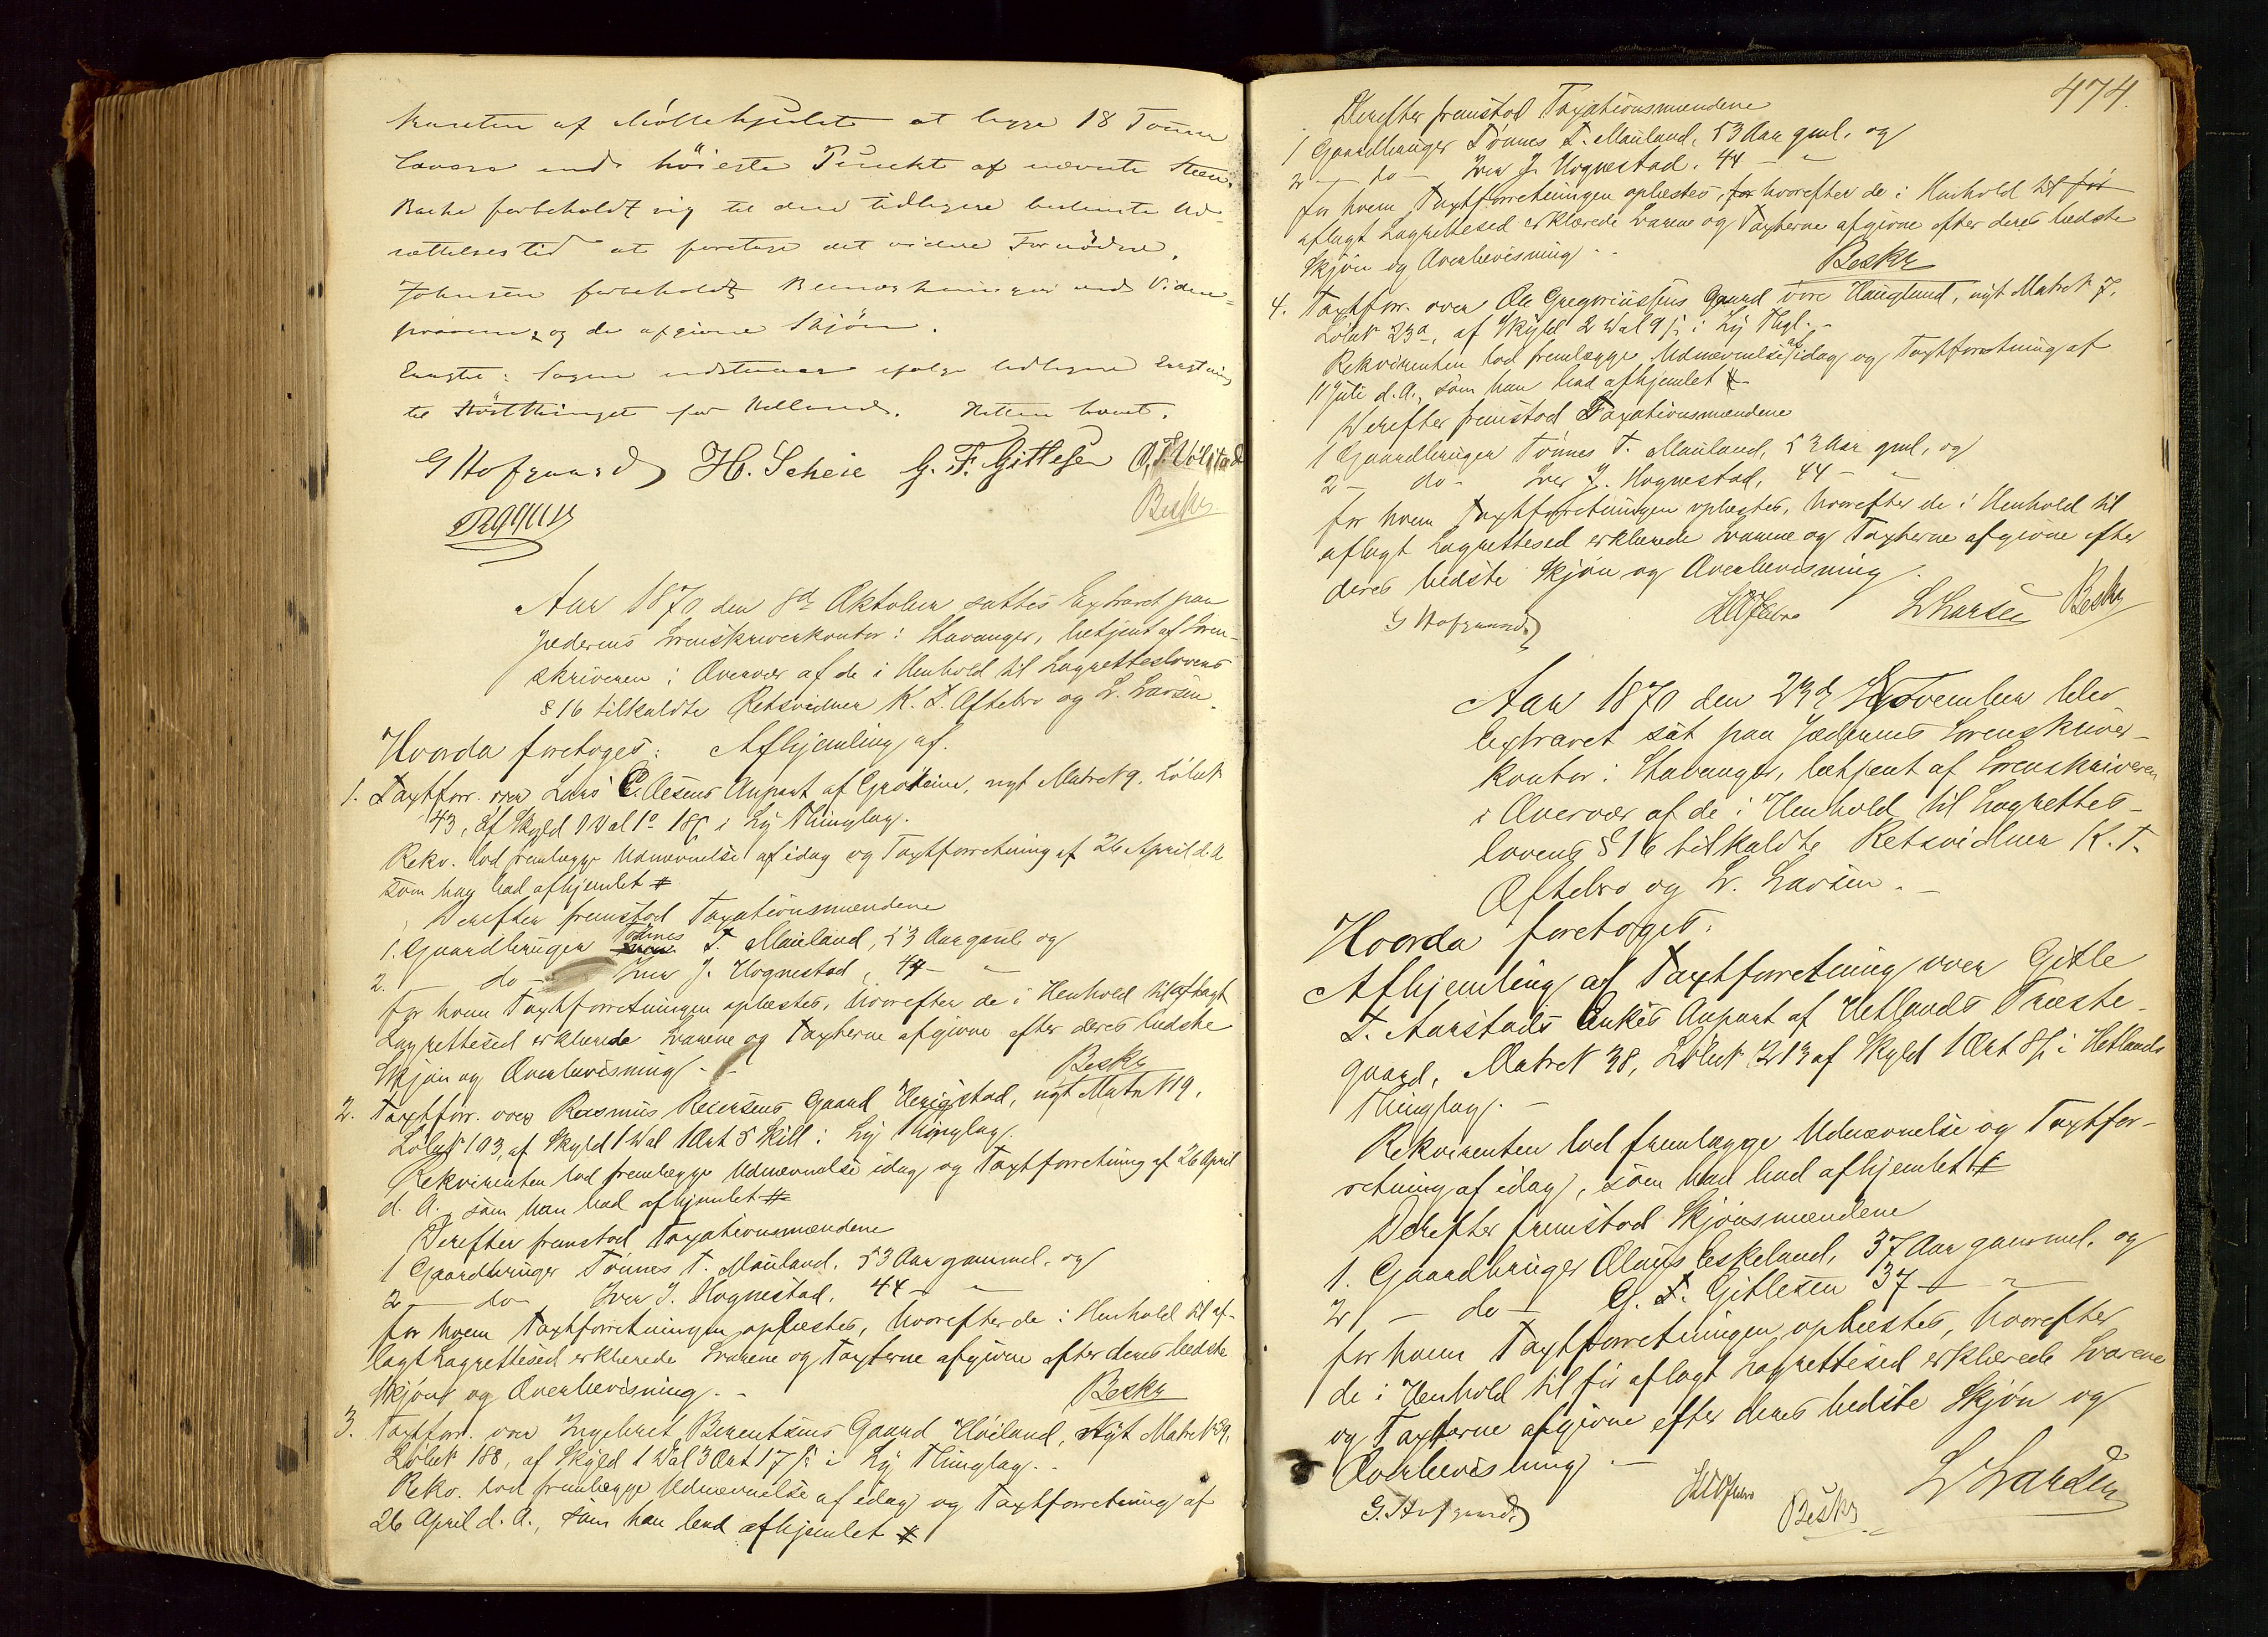 Kanten af Möllehjulet at ligge 18 Tommer
lavere end höieste Punkt af nævnte Steen.
Bache forbeholdt sig til den tidligere bestemte Ud-
sættelsestid at foretage det videre Fornödne.
Johnsen forbeholdt Bemærkninger ved Vidne-
provene og de afgivne Skjön.
Eragtet: Sagen udstaar ifølge tidligere Eragtning
til Höstthinget for Hetland. Retten hævet.
G Hofgaard H. Scheie G. F. Gitlesen
Beskr
Aar 1870 den 8de Oktober sattes Extraret paa
Jæderens Sorenskriverkontor i Stavanger, betjent af Soren-
skriveren i Overvær af de i Henhold til Lagretteslovens
§ 16 tilkaldte Retsvidner K. T. Oftebro og L. Larsen.
Hvorda foretoges: Afhjemling af.
1. Taxtforr. over Lars C. Aesens Anpart af Grödeim, nyt Matr № 9. Löbe №
43, af Skyld 1 Dal 1 o 18 ß i Ly Thinglag.
Rekv. lod fremlægge Udnævnelse af idag og Taxtforretning af 26 April d. A
som han bad afhjemlet #
Derefter fremstod Taxationsmændene
1. Gaardbruger Tönnes T. Mauland, 53 Aar gaml. og
2. — do — Iver J. Hognestad, 44 — "
for hvem Taxtforretningen oplæstes, hvorefter de i Henhold til aflagt
Lagrettesed erklærede Svarene og Taxterne afgivne efter deres bedste
Skjön og Overbevisning. —
Beskr
2. Taxtforr. over Rasmus Reiersens Gaard Herigstad, nyt Matr № 19.
Löbe № 103, af Skyld 1 Dal 1 Ort 5 Skill i Ly Thinglag.
Rekvirenten lod fremlægge Udnævnelse idag og Taxtforretning af 26 April
d. A. som han bad afhjemlet #
Derefter fremstod Taxationsmændene
1 Gaardbruger Tönnes T. Mauland, 53 Aar gammel, og
2 — do — Iver J. Hognestad, 44 — "
for hvem Taxtforretningen oplæstes, hvorefter de i Henhold til af-
lagt Lagrettesed erklærede Svarene og Taxterne afgivne efter deres bedste
Skjön og Overbevisning. —
Beskr
3. Taxtforr. over Ingebret Berentsens Gaard Höiland, nyt Matr № 39.
Löbe № 188, af Skyld 1 Dal 3 Ort 17 ß i Ly Thinglag. —
Rekv. lod fremlægge Udnævnelse af idag og Taxtforretning af
26 April d. A., som han bad afhjemlet #
474.
Derefter fremstod Taxationsmændene
1 Gaardbruger Tönnes T. Mauland, 53 Aar gml. og
2 — do — Iver J. Hognestad, 44 — "
for hvem Taxtforretningen oplæstes, for hvorefter de i Henhold til för
aflagt Lagrettesed erklærede Svarene og Taxterne afgivne efter deres bedste
Skjön og Overbevisning. —
Beskr
4. Taxtforr. over Ole Gregoriussens Gaard övre Haugland, nyt Matr № 7.
Löbe № 23a, af Skyld 2 Dal 9 ß i Ly Thgl. —
Rekvirenten lod fremlægge Udnævnelse af idag og Taxtforretning af
11 Juli d. A., som han bad afhjemlet #
Derefter fremstod Taxationsmændene
1 Gaardbruger Tönnes T. Mauland, 53 Aar gml, og
2 — do — Iver J. Hognestad, 44 — "
for hvem Taxtforretningen oplæstes, hvorefter de i Henhold til
aflagt Lagrettesed erklærede Svarene og Taxterne afgivne efter
deres bedste Skjön og Overbevisning.
G Hofgaard KTOftebro L Larsen Beskr
Aar 1870 den 23de November blev
Extraret sat paa Jæderens Sorenskriver-
kontor i Stavanger, betjent af Sorenskriveren
i Overvær af de i Henhold til Lagrettes-
lovens § 16 tilkaldte Retsvidner K. T.
Oftebro og L. Larsen. —
Hvorda foretoges:
Afhjemling af Taxtforretning over Gitle
T. Aarstads Enkes Anpart af Hetlands Præste-
gaard, Matr № 38, Löbe № 213 af Skyld 1 Ort 8 ß i Hetlands
Thinglag. —
Rekvirenten lod fremlægge Udnævnelse og Taxtfor-
retning af idag, som han bad afhjemlet #
Derefter fremstod Skjönsmændene
1. Gaardbruger Olaus Eskeland, 37 Aar gammel, og
2 — do — G. F. Gitlesen 37 — "
for hvem Taxtforretningen oplæstes, hvorefter
de i Henhold til för aflagt Lagrettesed erklærede Svarene
og Taxterne afgivne efter deres bedste Skjön og
Overbevisning. —
G. Hofgaard KTOftebro Beskr L Larsen